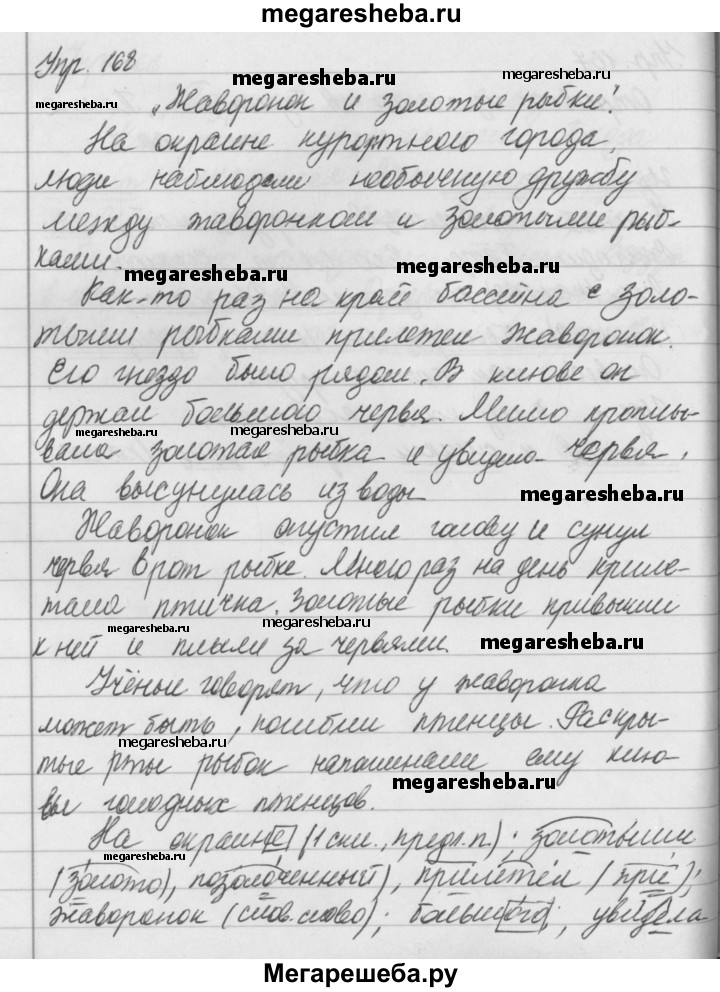 megaresheba.ru
Упр. 168
megaresheba.ru
megaresheba.ru
megaresheba.ru
„Жаворонок и золотые рыбки".
На окраине курортного города,
люди наблюдали необычную дружбу
между жаворонком и золотыми рыб-
ками.
megaresheba.ru
megaresheba.ru
Как-то раз на край бассейна с золо-
тыми рыбками прилетел жаворонок.
Его гнездо было рядом. В клюве он
держал большого червя. Мимо проплы-
megaresheba.ru
megaresheba.ru
вала золотая рыбка и увидела червя.
Она высунулась из воды
megaresheba.ru
Жаворонок опустил голову и сунул
червя в рот рыбке. Много раз на день приле-
тала птичка. Золотые рыбки привыкли
megaresheba.ru
к ней и плыли за червями.
megaresheba.ru
Учёные говорят, что у жаворонка
может быть, погибли птенцы. Раскры-
megaresheba.ru
тые рты рыбок напоминали ему клю-
megaresheba.ru
вы голодных птенцов.
На окраине (1 скл., предл. п.); золотыми
megaresheba.ru
(золото), позолоченный), прилетел (при);
жаворонок (слов. слово); большого; увидела
Мегарешеба.ру